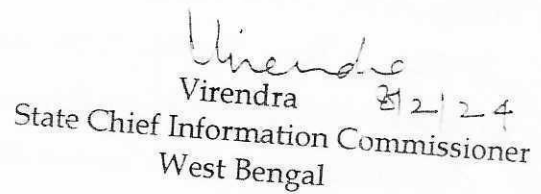 Virendra
Virendra
State Chief Information Commissioner
West Bengal